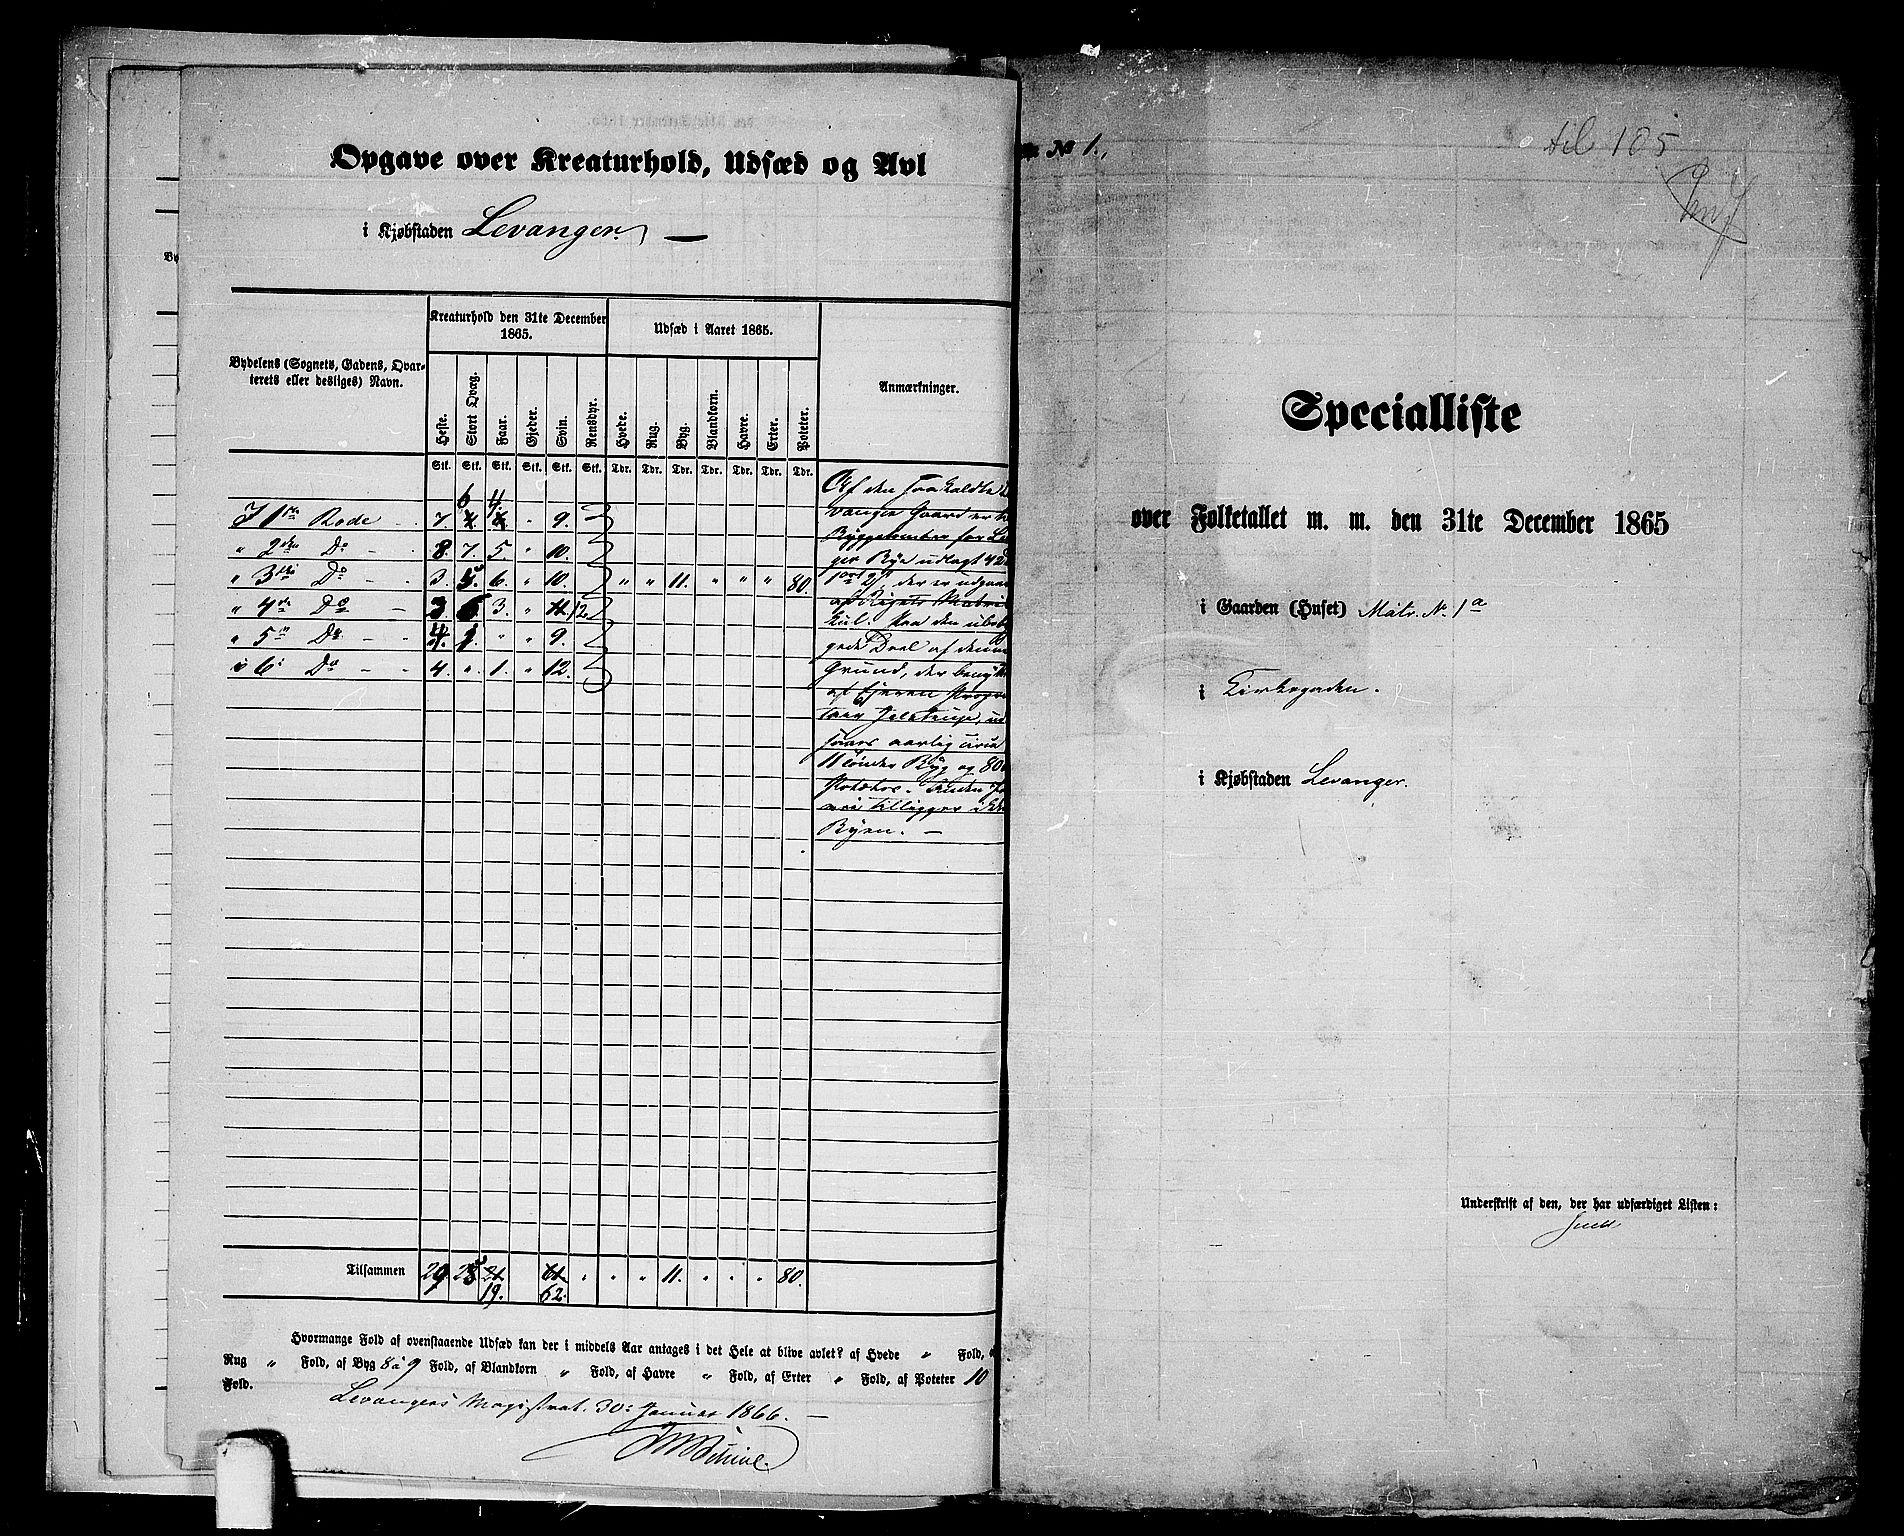 Opgave over Kreaturhold, Udsæd og Avl
i Kjøbstaden Levanger.
Bydelens (Sognets, Gadens, Qvar-
terets eller desliges) Navn.
Kreaturhold den 31te December
1865.
Udsæd i Aaret 1865.
Anmærkninger.
Heste. Stort Qvæg. Faar. Gjeder. Svin. Rensdyr. Hvede. Rug. Byg. Blandkorn. Havre. Erter. Poteter.
Stk. Stk. Stk. Stk. Stk. Stk. Tdr. Tdr. Tdr. Tdr. Tdr. Tdr. Tdr.
6 4.
I 1ste Rode 7. " 9.
" 2den Do 8. 7. 5. " 10.
" 3die Do 3. 5. 6. " 10. " " 11. " " " 80.
" 4de Do 3. 6. 3. " 11. 12.
" 5te Do 4. 1. " " 9.
" 6te Do 4. " 1. " 12.
Af den saakaldte Le
vanger Gaard er til
Byggetomter for Le
ger Bye udlagt
der er udgaae
af Rigets Matri
kul. Paa den ubeb
gede Deel af denne
Grund, der benyttes
af Eieren
Jelstrup, ud
saaes aarlig circa
11 Tønder Byg og 80
Poteter. Anden Jo
tilligger ikke
Byen. —
Tilsammen 29. 25 21 61 " " " 11. " " " 80.
19. 62.
Hvormange Fold af ovenstaaende Udsæd kan der i middels Aar antages i det Hele at blive avlet? af Hvede " Fold, a
Rug " Fold, af Byg 8 à 9 Fold, af Blandkorn " Fold, af Havre " Fold, af Erter " Fold, af Poteter 10
Fold.
Levangers Magistrat. 30: Januar 1866. —
No 1.,
til 105
Specialliste
over Folketallet m. m. den 31te December 1865
i Gaarden (Huset) Matr. No 1a
i Kirkegaden.
i Kjøbstaden Levanger.
Underskrift af den, der har udfærdiget Listen: